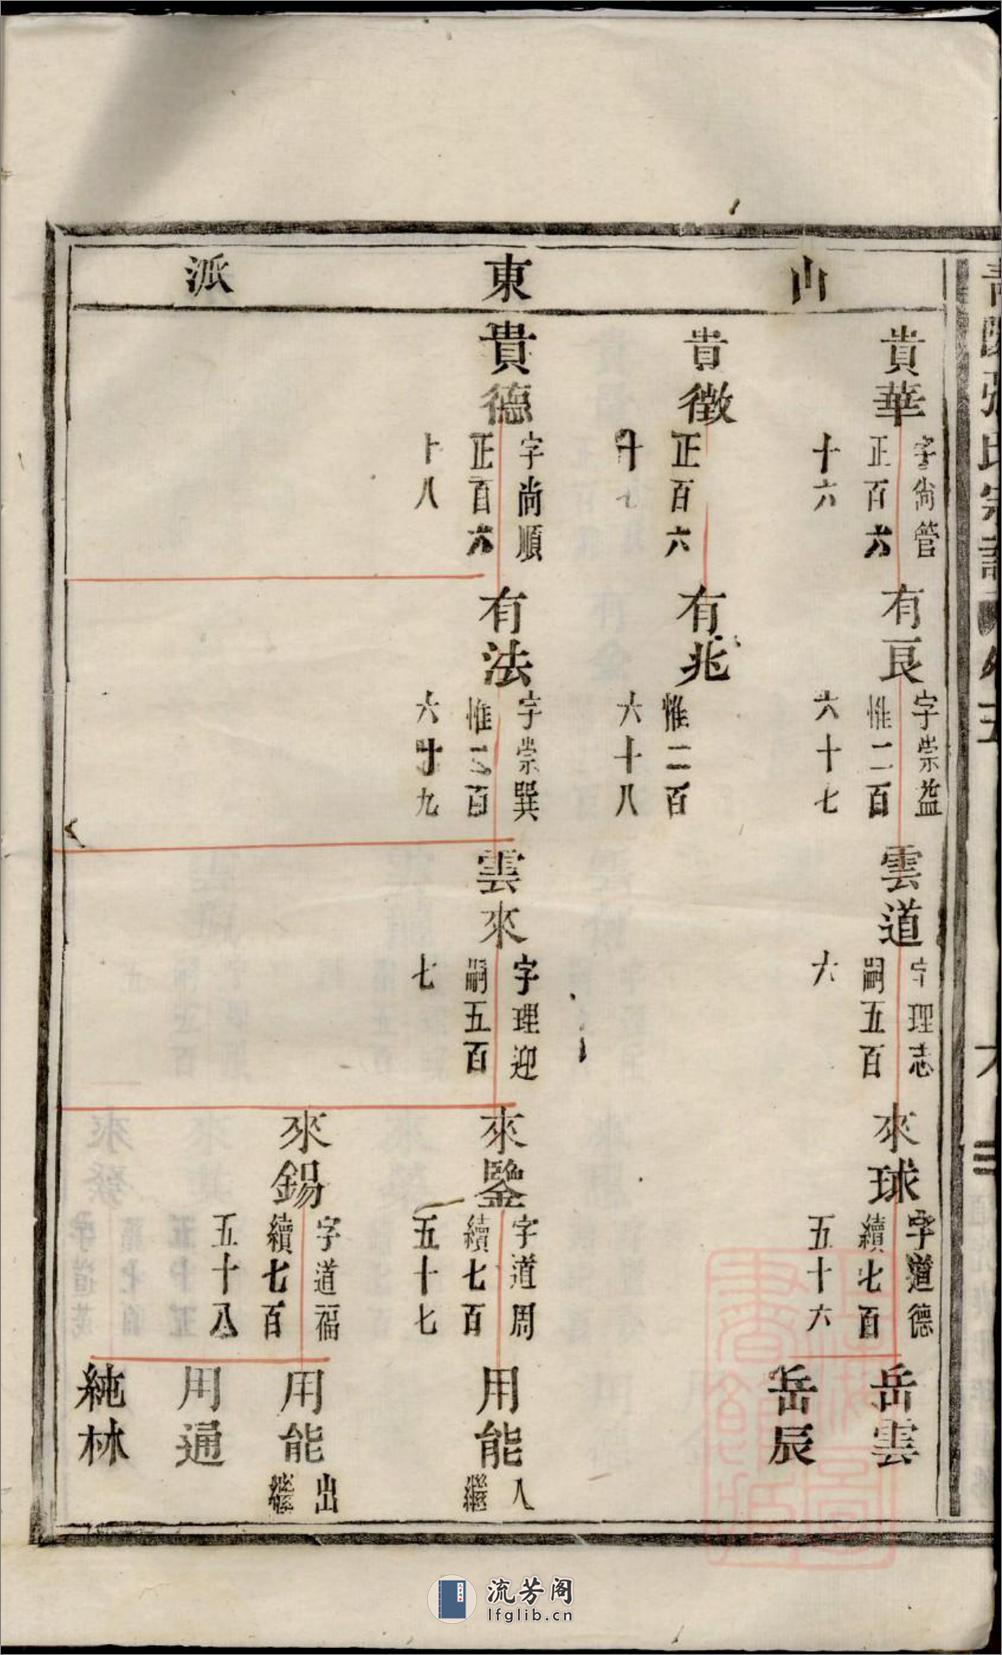 山東派
貴華
字尚管
正百六
十六
貴徵
正百六
十七
貴德
字尚順
正百六
十八
有良
字崇益
惟二百
六十七
有兆
惟二百
六十八
有法
字崇巽
惟二百
六十九
雲道
字理志
嗣五百
六
雲來
字理迎
嗣五百
七
來球
字道德
續七百
五十六
來鑒
字道周
續七百
五十七
來錫
字道福
續七百
五十八
岳雲
岳辰
用能
入
繼
用能
出
繼
用通
純林
流芳阁
lfglib.cn